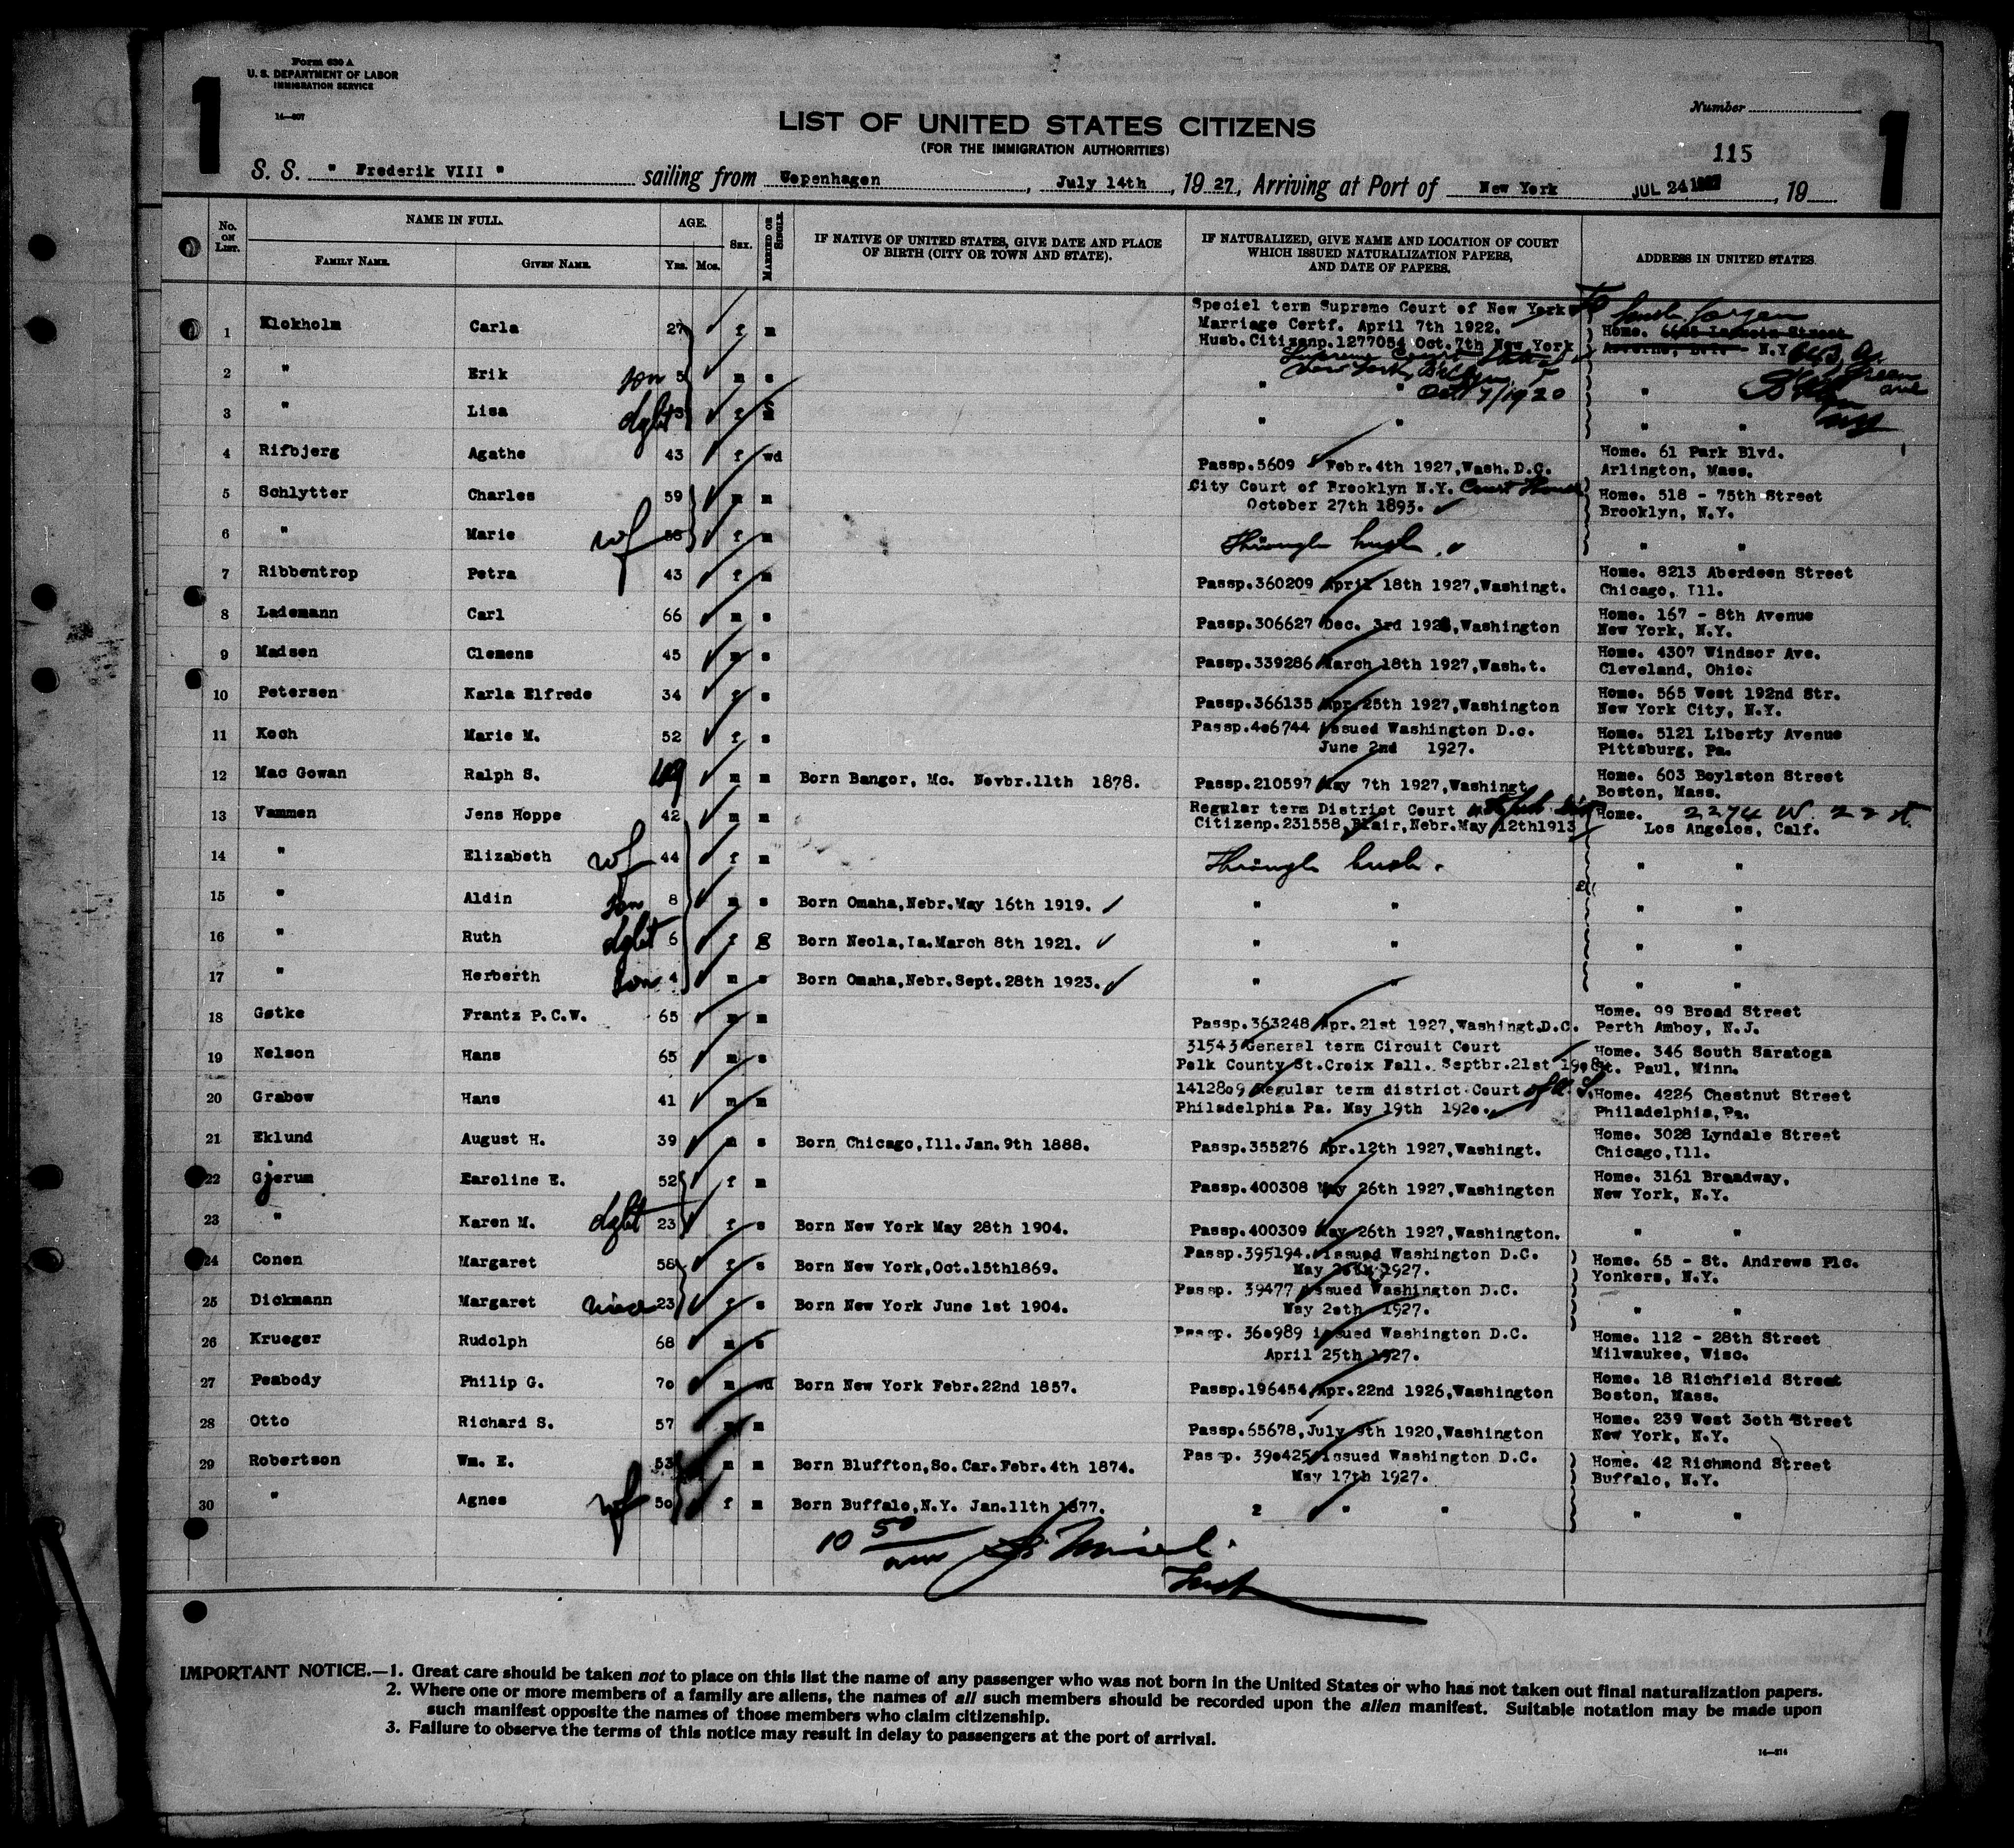 1
Form 630 A
U. S. DEPARTMENT OF LABOR
IMMIGRATION SERVICE
14—407
Number
1
LIST OF UNITED STATES CITIZENS
(FOR THE IMMIGRATION AUTHORITIES)
115
S. S. " Frederik VIII " sailing from Copenhagen, July 14th, 1927, Arriving at Port of New York JUL 24 1927, 19
No. ON LIST. NAME IN FULL. AGE. SEX. MARRIED OR SINGLE. IF NATIVE OF UNITED STATES, GIVE DATE AND PLACE OF BIRTH (CITY OR TOWN AND STATE). IF NATURALIZED, GIVE NAME AND LOCATION OF COURT WHICH ISSUED NATURALIZATION PAPERS, AND DATE OF PAPERS. ADDRESS IN UNITED STATES.
FAMILY NAME. GIVEN NAME. Yrs. Mos.
Speciel term Supreme Court of New York
1 Klokholm Carla 27 f m Marriage Certf. April 7th 1922. Home.
Husb.Citizenp.1277054 Oct.7th New York N.Y.
Supreme Court
2 " Erik son 5 m s New York, "
" " Oct 7/1920
3 " Lisa dght 3 f " " " "
4 Rifbjerg Agathe 43 f wd Passp.5609 Febr.4th 1927,Wash.D.C. Home. 61 Park Blvd.
Arlington, Mass.
5 Schlytter Charles 59 m m City Court of Brooklyn N.Y. Court House Home. 518 - 75th Street
October 27th 1893. Brooklyn, N.Y.
6 " Marie wf f m Through husb. " "
7 Ribbentrop Petra 43 f m Passp.360209 April 18th 1927,Washingt. Home. 8213 Aberdeen Street
Chicago, Ill.
8 Lademann Carl 66 m s Passp.306627 Dec. 3rd 1926,Washington Home. 167 - 8th Avenue
New York, N.Y.
9 Madsen Clemens 45 m s Passp.339286 March 18th 1927,Wash.t. Home. 4307 Windsor Ave.
Cleveland, Ohio.
10 Petersen Karla Elfrede 34 f s Passp.366135 Apr.25th 1927,Washington Home. 565 West 192nd Str.
New York City, N.Y.
11 Koch Marie M. 52 f s Passp.406744 issued Washington D.c. Home. 5121 Liberty Avenue
June 2nd 1927. Pittsburg, Pa.
12 Mac Gowan Ralph S. 49 m m Born Bangor, Mc. Novbr.11th 1878. Passp.210597 May 7th 1927,Washingt. Home. 603 Boylston Street
Boston, Mass.
13 Vammen Jens Hoppe 42 m m Regular term District Court Home. 2274 W. 22 st.
Citizenp.231558,Blair,Nebr.May 12th1913 Los Angelos, Calf.
14 " Elizabeth wf 44 f m Through husb. " "
15 " Aldin son 8 m s Born Omaha,Nebr.May 16th 1919. " " " "
16 " Ruth dght 6 f s Born Neola,Ia.March 8th 1921. " " " "
17 " Herberth son 4 m s Born Omaha,Nebr.Sept.28th 1923. " " " "
18 Gøtke Frantz P.C.W. 65 m m Passp.363248 Apr.21st 1927,Washingt.D.C. Home. 99 Broad Street
Perth Amboy, N.J.
19 Nelson Hans 65 m s 31543 General term Circuit Court Home. 346 South Saratoga
Polk County St.Croix Fall. Septbr.21st 1908 St. Paul, Minn.
20 Grabow Hans 41 m m 1412809 Regular term district Court of U. S. Home. 4226 Chestnut Street
Philadelphia Pa. May 19th 1920. Philadelphia,Pa.
21 Eklund August H. 39 m s Born Chicago,Ill.Jan.9th 1888. Passp.355276 Apr.12th 1927,Washingt. Home. 3028 Lyndale Street
Chicago,Ill.
22 Gjerum Karoline E. 52 f m Passp.400308 May 26th 1927,Washington Home. 3161 Broadway,
New York, N.Y.
23 " Karen M. dght 23 f s Born New York May 28th 1904. Passp.400309 May 26th 1927,Washington. " "
24 Conen Margaret 58 f s Born New York,Oct.15th1869. Passp.395194. issued Washington D.C. Home. 65 - St. Andrews Plc.
May 1927. Yonkers, N.Y.
25 Dickmann Margaret niece 23 f s Born New York June 1st 1904. Passp. 39477 issued Washington D.C. " "
May 20th 1927.
26 Krueger Rudolph 68 m s Passp. 360989 issued Washington D.C. Home. 112 - 28th Street
April 25th 1927. Milwaukee, Wisc.
27 Peabody Philip G. 70 m wd Born New York Febr.22nd 1857. Passp.196454,Apr.22nd 1926,Washington Home. 18 Richfield Street
Boston, Mass.
28 Otto Richard S. 57 m m Passp.65678,July 9th 1920,Washington Home. 239 West 30th Street
New York, N.Y.
29 Robertson Wm. E. 53 m m Born Bluffton,So.Car.Febr.4th 1874. Passp. 390425 issued Washington D.C. Home. 42 Richmond Street
May 17th 1927. Buffalo, N.Y.
30 " Agnes wf 50 f m Born Buffalo,N.Y. Jan.11th 1877. 2 " " " "
10 50 am
IMPORTANT NOTICE.—1. Great care should be taken not to place on this list the name of any passenger who was not born in the United States or who has not taken out final naturalization papers.
2. Where one or more members of a family are aliens, the names of all such members should be recorded upon the alien manifest. Suitable notation may be made upon
such manifest opposite the names of those members who claim citizenship.
3. Failure to observe the terms of this notice may result in delay to passengers at the port of arrival.
14—414